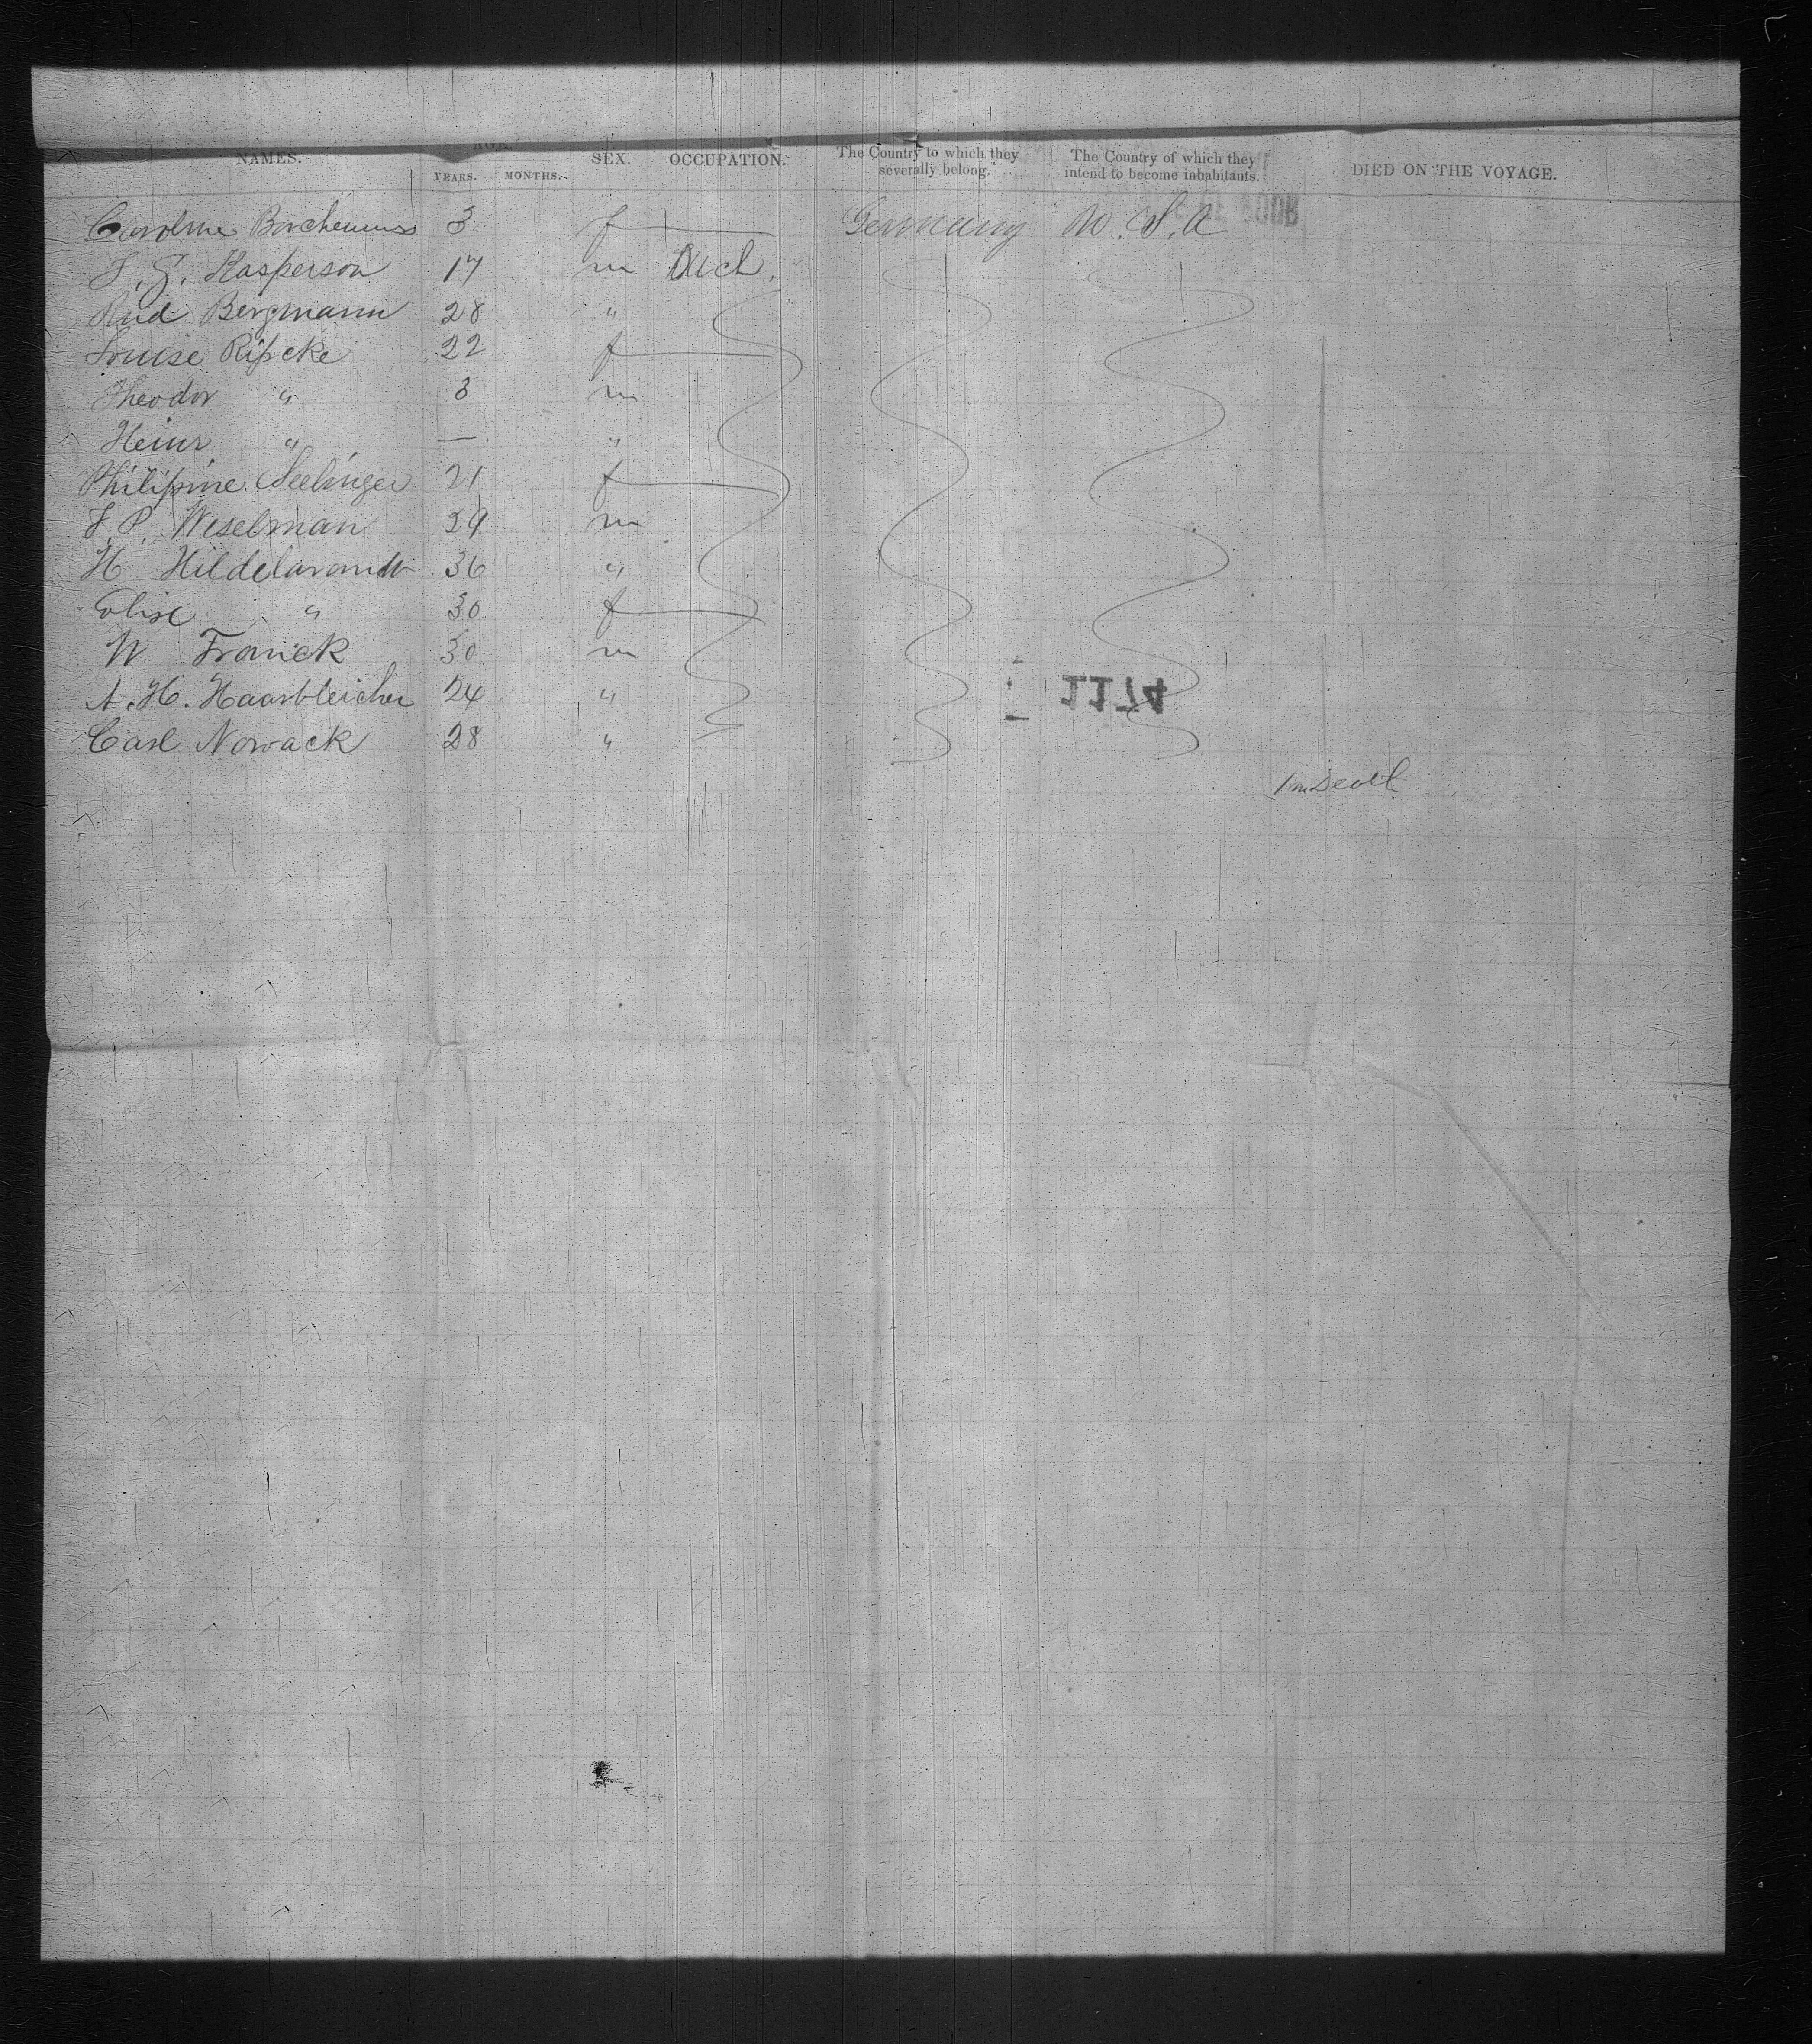 NAMES. AGE. YEARS. MONTHS. SEX. OCCUPATION. The Country to which they severally belong. The Country of which they intend to become inhabitants. DIED ON THE VOYAGE.
Caroline 3 f Germany U.S.A
Kasperson 17 m
Rud Bergmann 28 "
Louise Ripcke 22 f
Theodor " 3 m
Heinr " — "
Philipine Seelinger 21 f
J. P. Weselman 29 m
H Hildebrandt 36 "
Elise " 30 f
W Franck 30 m
A. H. Haarbleicher 24 "
1174
Carl Nowack 28 "